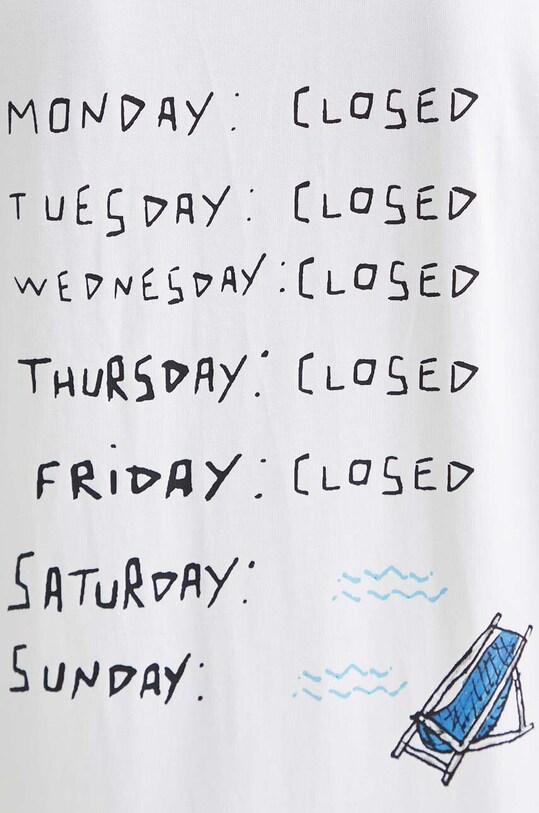 MONDAY: CLOSED
TUESDAY: CLOSED
WEDNESDAY: CLOSED
THURSDAY: CLOSED
FRIDAY: CLOSED
SATURDAY:
SUNDAY: